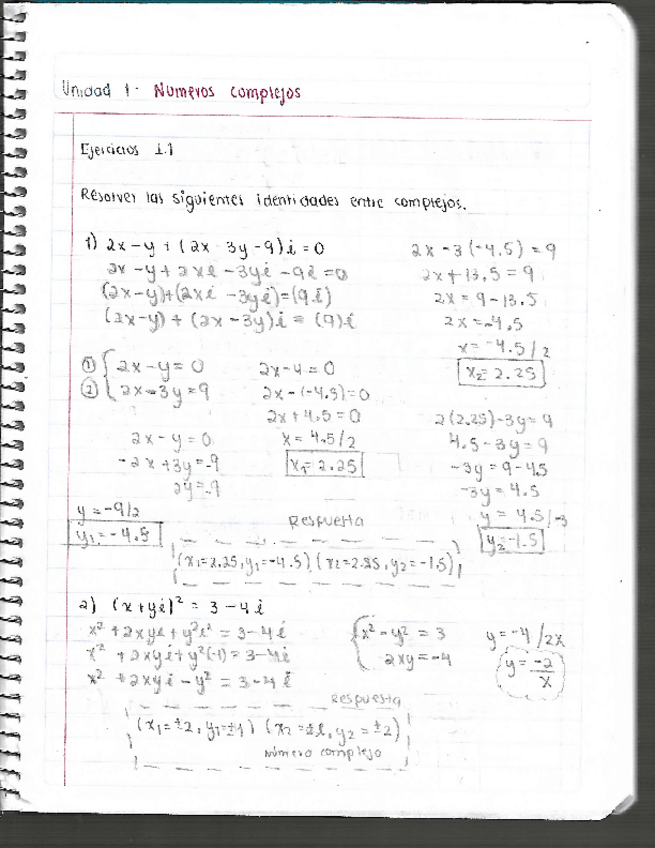 Unidad 1. Numeros complejos
Ejercicios 1.1
Resolver las siguientes identidades entre complejos.
1) 2x-y+(2x 3y-9)i=0
2x-y+2xi-3yi-9i=0
(2x-y)+(2xi-3yi)=(9i)
(2x-y)+(2x-3y)i=(9)i
① { 2x-y=0
② { 2x-3y=9
2x-y=0
-2x+3y=-9
2y=-9
y=-9/2
y₁=-4.5
2x-4=0
2x-(-4.5)=0
2x+4.5=0
x=4.5/2
x₁=2.25
2x-3(-4.5)=9
2x+13.5=9
2x=9-13.5
2x=-4.5
x=-4.5/2
x₂=2.25
2(2.25)-3y=9
4.5-3y=9
-3y=9-4.5
-3y=4.5
y=4.5/-3
y₂-1.5
Respuesta
(x₁=2.25,y₁=-4.5) (x₂=2.25,y₂=-1.5)
2) (x+yi)²=3-4i
x²+2xyi+y²i²=3-4i
x²+2xyi+y²(-1)=3-4i
x²+2xyi-y²=3-4i
{ x²-y²=3
2xy=-4
y=-4/2x
y=-2/x
Respuesta
(x₁=±2,y₁=±1) (x₂=±i,y₂=±2)
número complejo